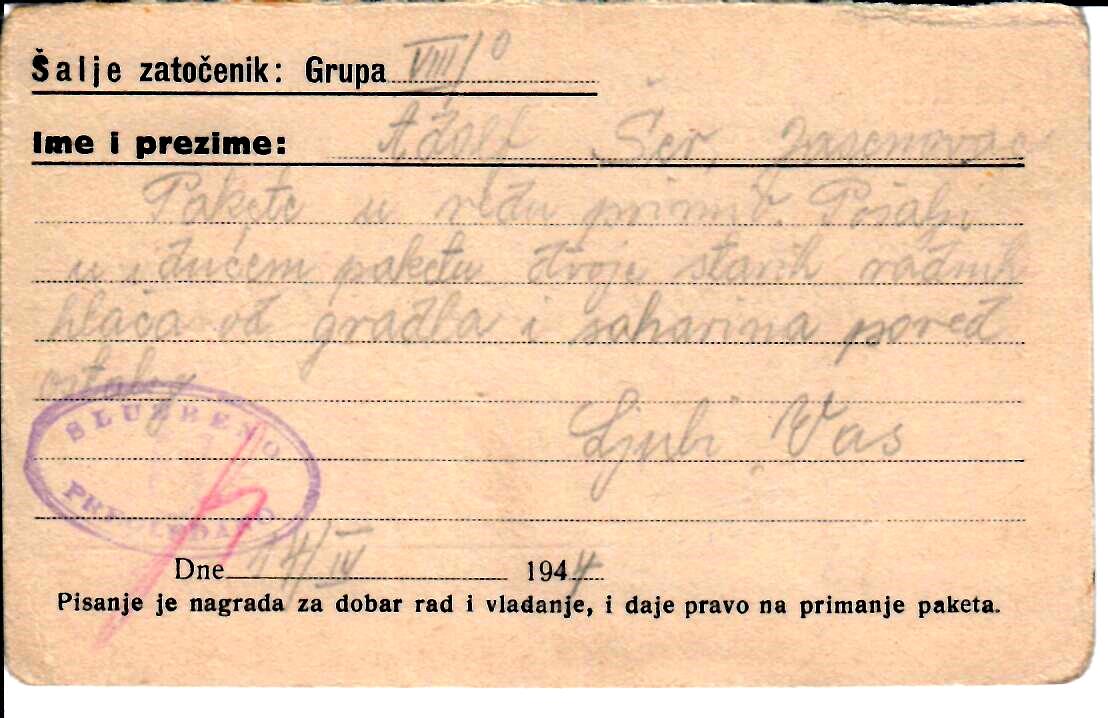 Šalje zatočenik: Grupa VIII/0
Ime i prezime: Adolf Šer, Jasenovac
Pakete u redu primio. Pošalji
u idućem paketu dvoje starih radnih
hlača od gradla i saharina pored
ostalog
Ljubi Vas
SLUŽBENO
PREGLEDANO
Dne 14/IV 1944
Pisanje je nagrada za dobar rad i vladanje, i daje pravo na primanje paketa.